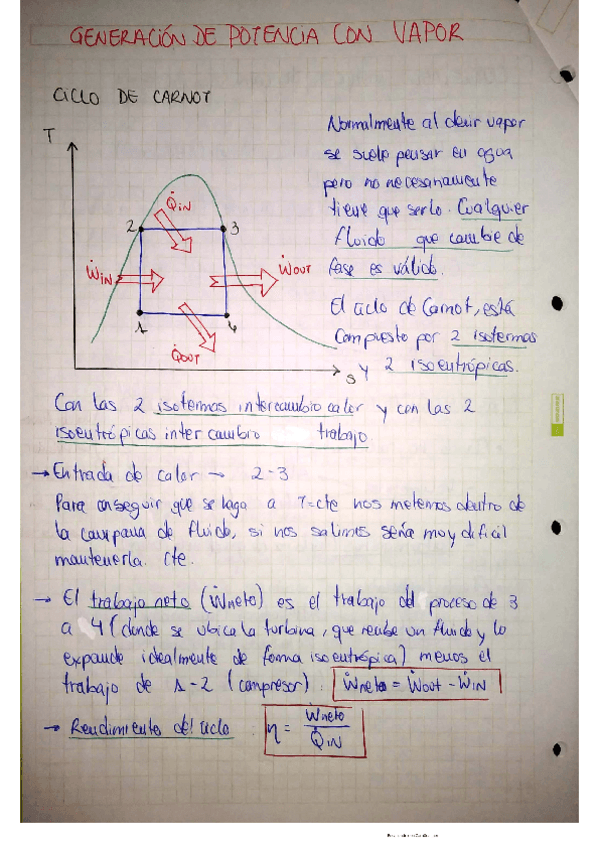 GENERACIÓN DE POTENCIA CON VAPOR
CICLO DE CARNOT
T
2
3
Q̇IN
ẆIN
ẆOUT
1
4
Q̇OUT
s
Normalmente al decir vapor
se suele pensar en agua
pero no necesariamente
tiene que serlo. Cualquier
fluido que cambie de
fase es válido.
El ciclo de Carnot, está
compuesto por 2 isotermas
y 2 isoentrópicas.
Con las 2 isotermas intercambio calor y con las 2
isoentrópicas intercambio trabajo
→ Entrada de calor → 2-3
Para conseguir que se haga a T=cte nos metemos dentro de
la campana de fluido, si nos salimos sería muy difícil
mantenerla cte.
→ El trabajo neto (Ẇneto) es el trabajo del proceso de 3
a 4 (donde se ubica la turbina, que recibe un fluido y lo
expande idealmente de forma isoentrópica) menos el
trabajo de 1-2 (compresor). Ẇneto = Ẇout - ẆIN
→ Rendimiento del ciclo η = Ẇneto / Q̇IN